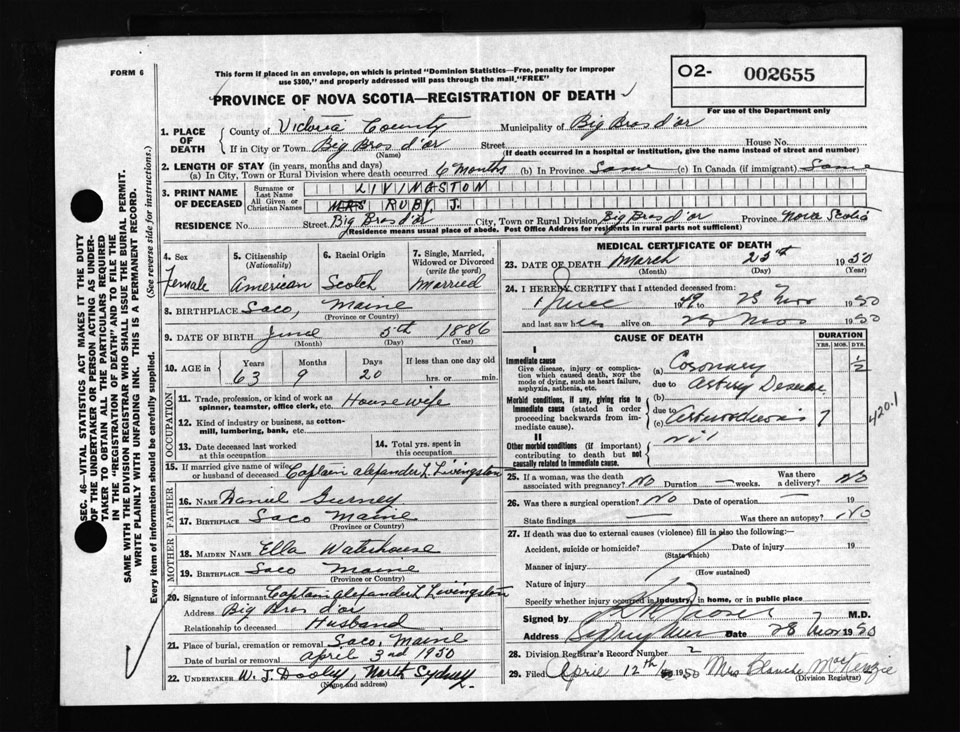 FORM 6
This form if placed in an envelope, on which is printed "Dominion Statistics—Free, penalty for improper
use $300," and properly addressed will pass through the mail, "FREE"
O2- 002655
For use of the Department only
PROVINCE OF NOVA SCOTIA—REGISTRATION OF DEATH
1. PLACE OF DEATH
County of Victoria County Municipality of Big Bras d'or
If in City or Town Big Bras d'or Street House No.
(Name) (If death occurred in a hospital or institution, give the name instead of street and number)
2. LENGTH OF STAY (in years, months and days)
(a) In City, Town or Rural Division where death occurred 6 months (b) In Province Same (c) In Canada (if immigrant) Same
3. PRINT NAME OF DECEASED
Surname or Last Name LIVINGSTON
All Given or Christian Names MRS RUBY J.
RESIDENCE No. Street Big Bras d'or City, Town or Rural Division Big Bras d'or Province Nova Scotia
(Residence means usual place of abode. Post Office Address for residents in rural parts not sufficient)
4. Sex Female
5. Citizenship (Nationality) American
6. Racial Origin Scotch
7. Single, Married, Widowed or Divorced (write the word) Married
8. BIRTHPLACE Saco, Maine
(Province or Country)
9. DATE OF BIRTH June 5th 1886
(Month) (Day) (Year)
10. AGE in Years Months Days If less than one day old
63 9 20 hrs. or min.
OCCUPATION
11. Trade, profession, or kind of work as spinner, teamster, office clerk, etc. Housewife
12. Kind of industry or business, as cotton-mill, lumbering, bank, etc.
13. Date deceased last worked at this occupation
14. Total yrs. spent in this occupation
15. If married give name of wife or husband of deceased Captain Alexander L. Livingston
FATHER
16. NAME Daniel Gurney
17. BIRTHPLACE Saco Maine
(Province or Country)
MOTHER
18. MAIDEN NAME Ella Waterhouse
19. BIRTHPLACE Saco Maine
(Province or Country)
20. Signature of informant Captain Alexander L Livingston
Address Big Bras d'or
Relationship to deceased Husband
21. Place of burial, cremation or removal Saco, Maine
Date of burial or removal April 3rd 1950
22. UNDERTAKER W. J. Dooley, North Sydney
(Name and address)
MEDICAL CERTIFICATE OF DEATH
23. DATE OF DEATH March 25th 1950
(Month) (Day) (Year)
24. I HEREBY CERTIFY that I attended deceased from:
June 1949 1950
and last saw her alive on 1950
CAUSE OF DEATH
DURATION
YRS. MOS. DYS.
I
Immediate cause
Give disease, injury or complication which caused death, not the mode of dying, such as heart failure, asphyxia, asthenia, etc.
(a) Coronary 1/2
due to Artery Disease
Morbid conditions, if any, giving rise to immediate cause (stated in order proceeding backwards from immediate cause).
(b)
due to
(c)
420.1
II
Other morbid conditions (if important) contributing to death but not causally related to immediate cause.
Nil
25. If a woman, was the death associated with pregnancy? No Duration — weeks. Was there a delivery? No
26. Was there a surgical operation? No Date of operation — 19
State findings — Was there an autopsy? No
27. If death was due to external causes (violence) fill in also the following:—
Accident, suicide or homicide? Date of injury 19
(State which)
Manner of injury
(How sustained)
Nature of injury
Specify whether injury occurred in industry, in home, or in public place
Signed by M.D.
Address Sydney Mines Date 28 1950
28. Division Registrar's Record Number 2
29. Filed April 12th 1950 Mrs Blanche MacKenzie
(Division Registrar)
SEC. 46—VITAL STATISTICS ACT MAKES IT THE DUTY
OF THE UNDERTAKER OR PERSON ACTING AS UNDER-
TAKER TO OBTAIN ALL THE PARTICULARS REQUIRED
IN THE "REGISTRATION OF DEATH" AND TO FILE THE
SAME WITH THE DIVISION REGISTRAR WHO SHALL ISSUE THE BURIAL PERMIT.
WRITE PLAINLY WITH UNFADING INK. THIS IS A PERMANENT RECORD.
Every item of information should be carefully supplied. (See reverse side for instructions.)